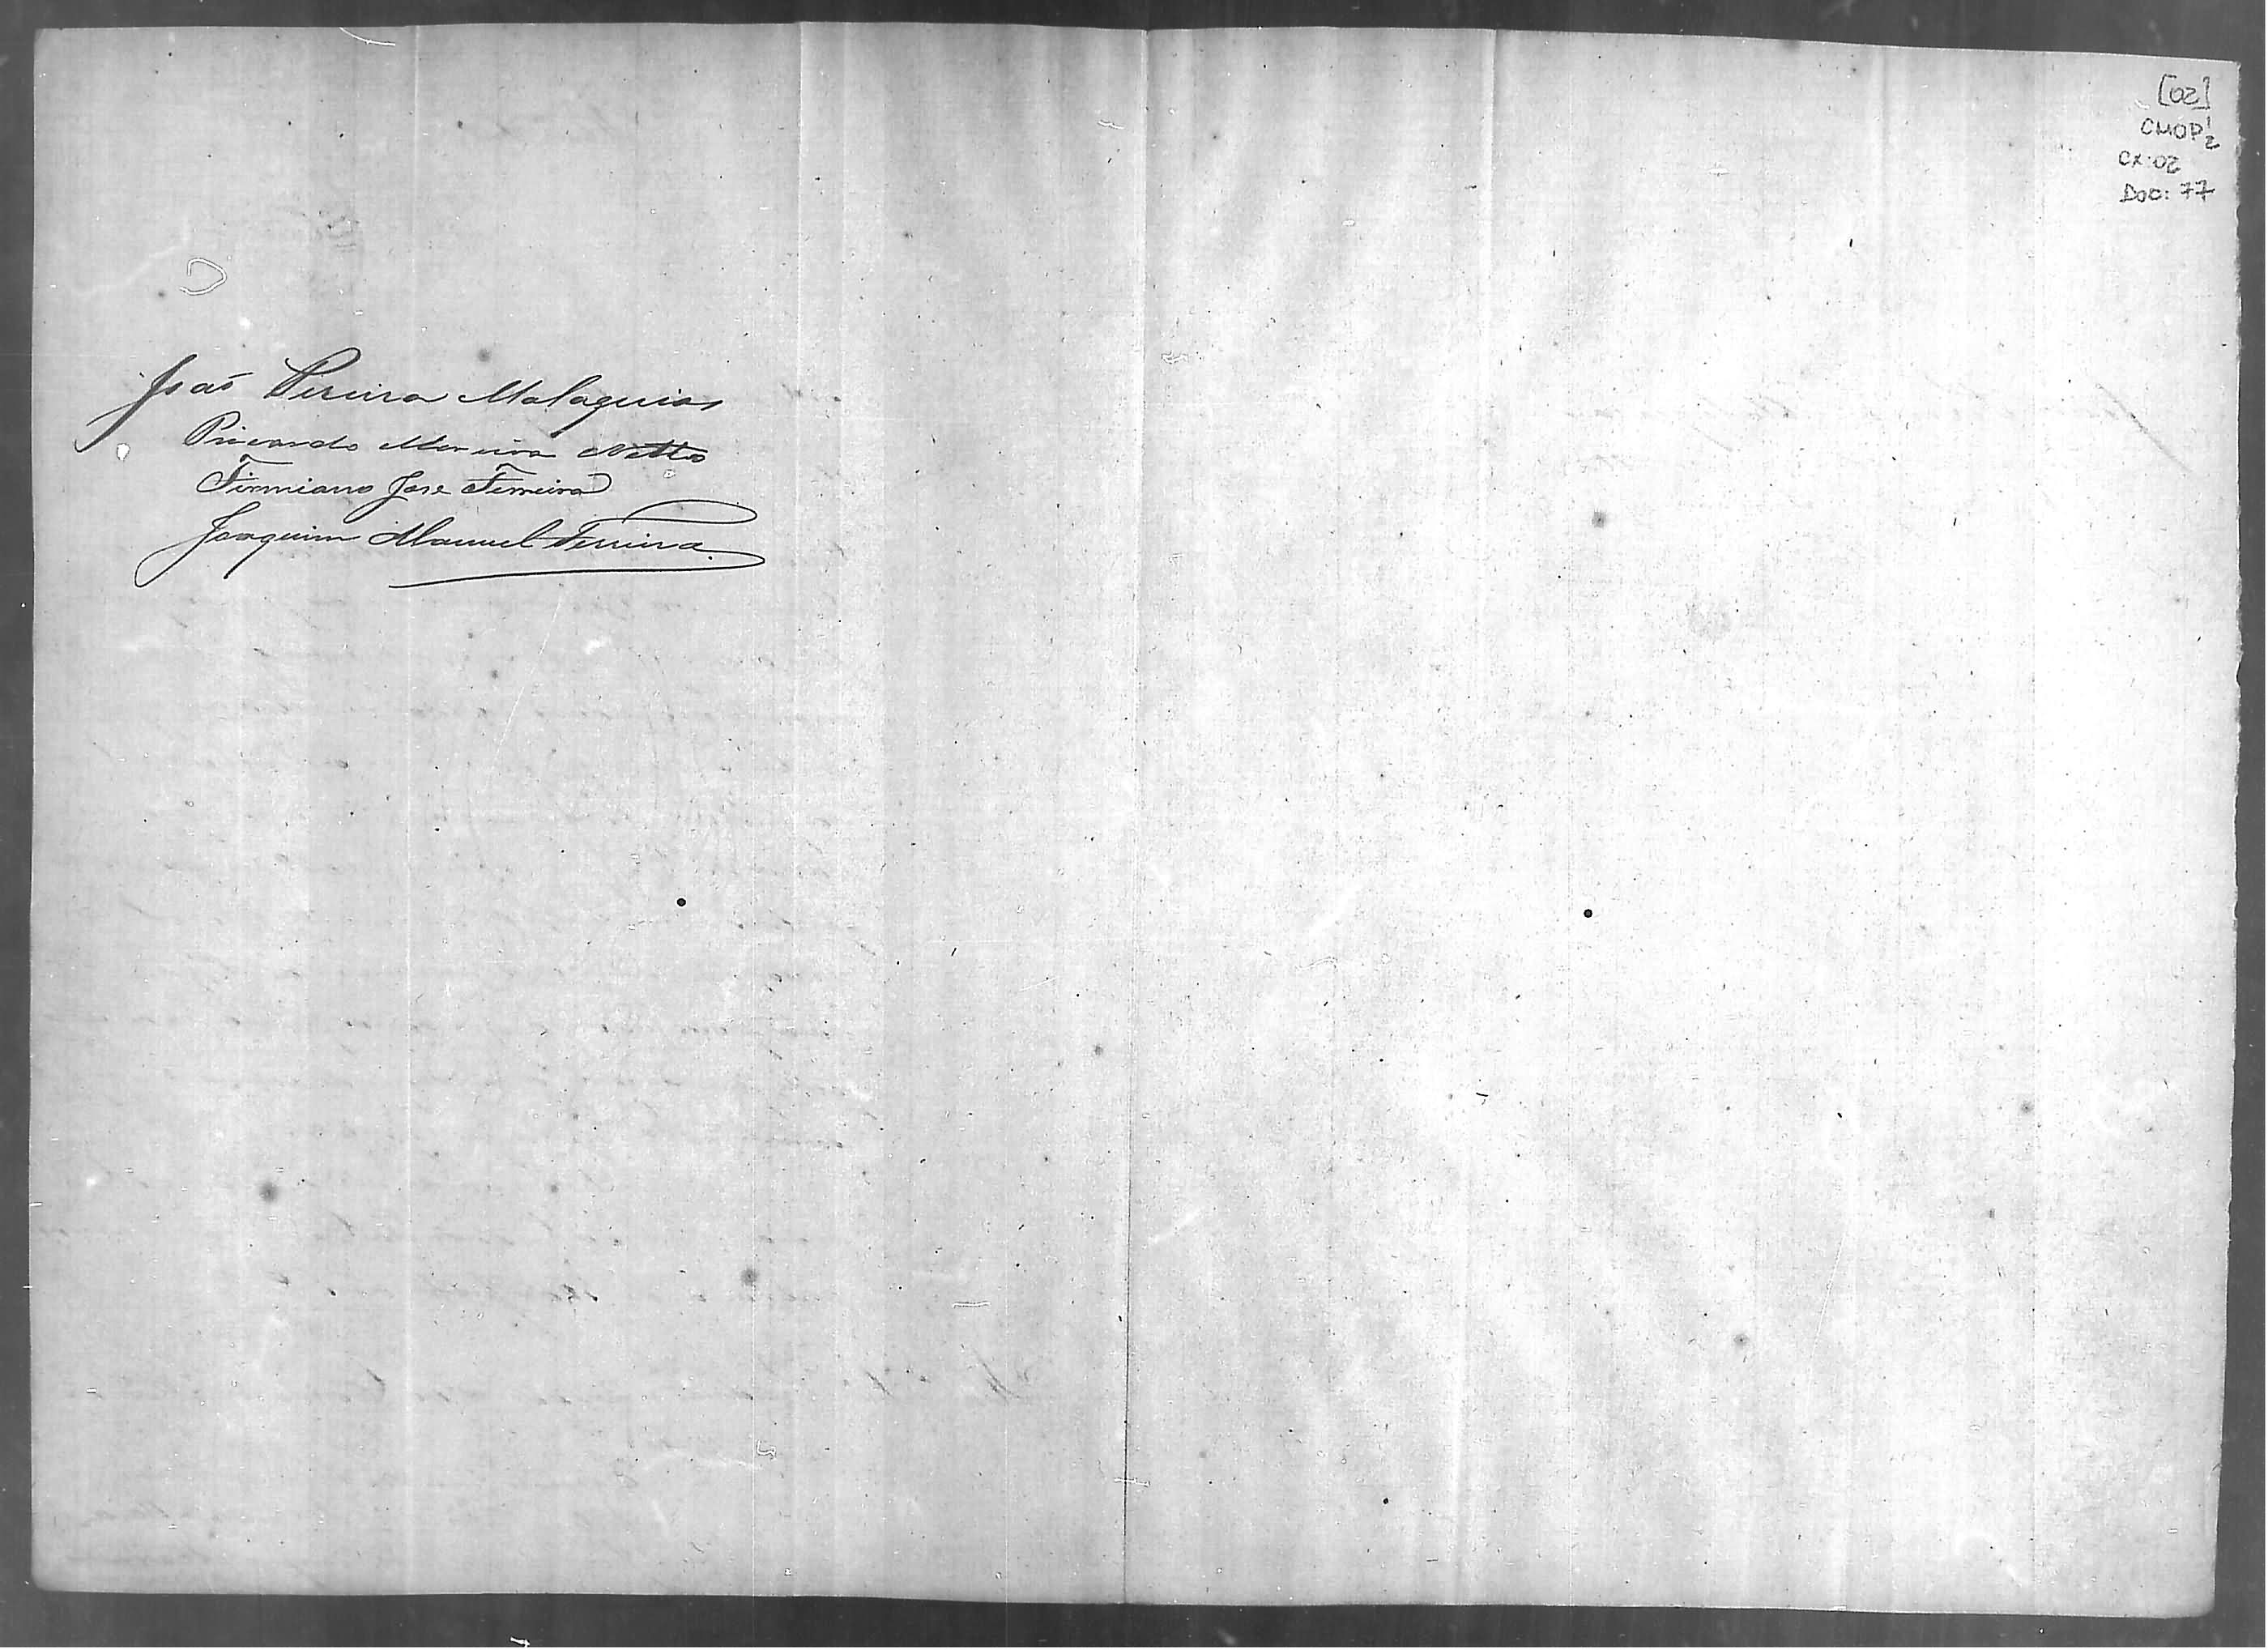 João Pereira Malaquias
Ricardo Moreira Netto
Firmiano Jose Ferreira
Joaquim Manuel Ferreira
[02]
CMOP 1/2
CX: 02
Doc: 77